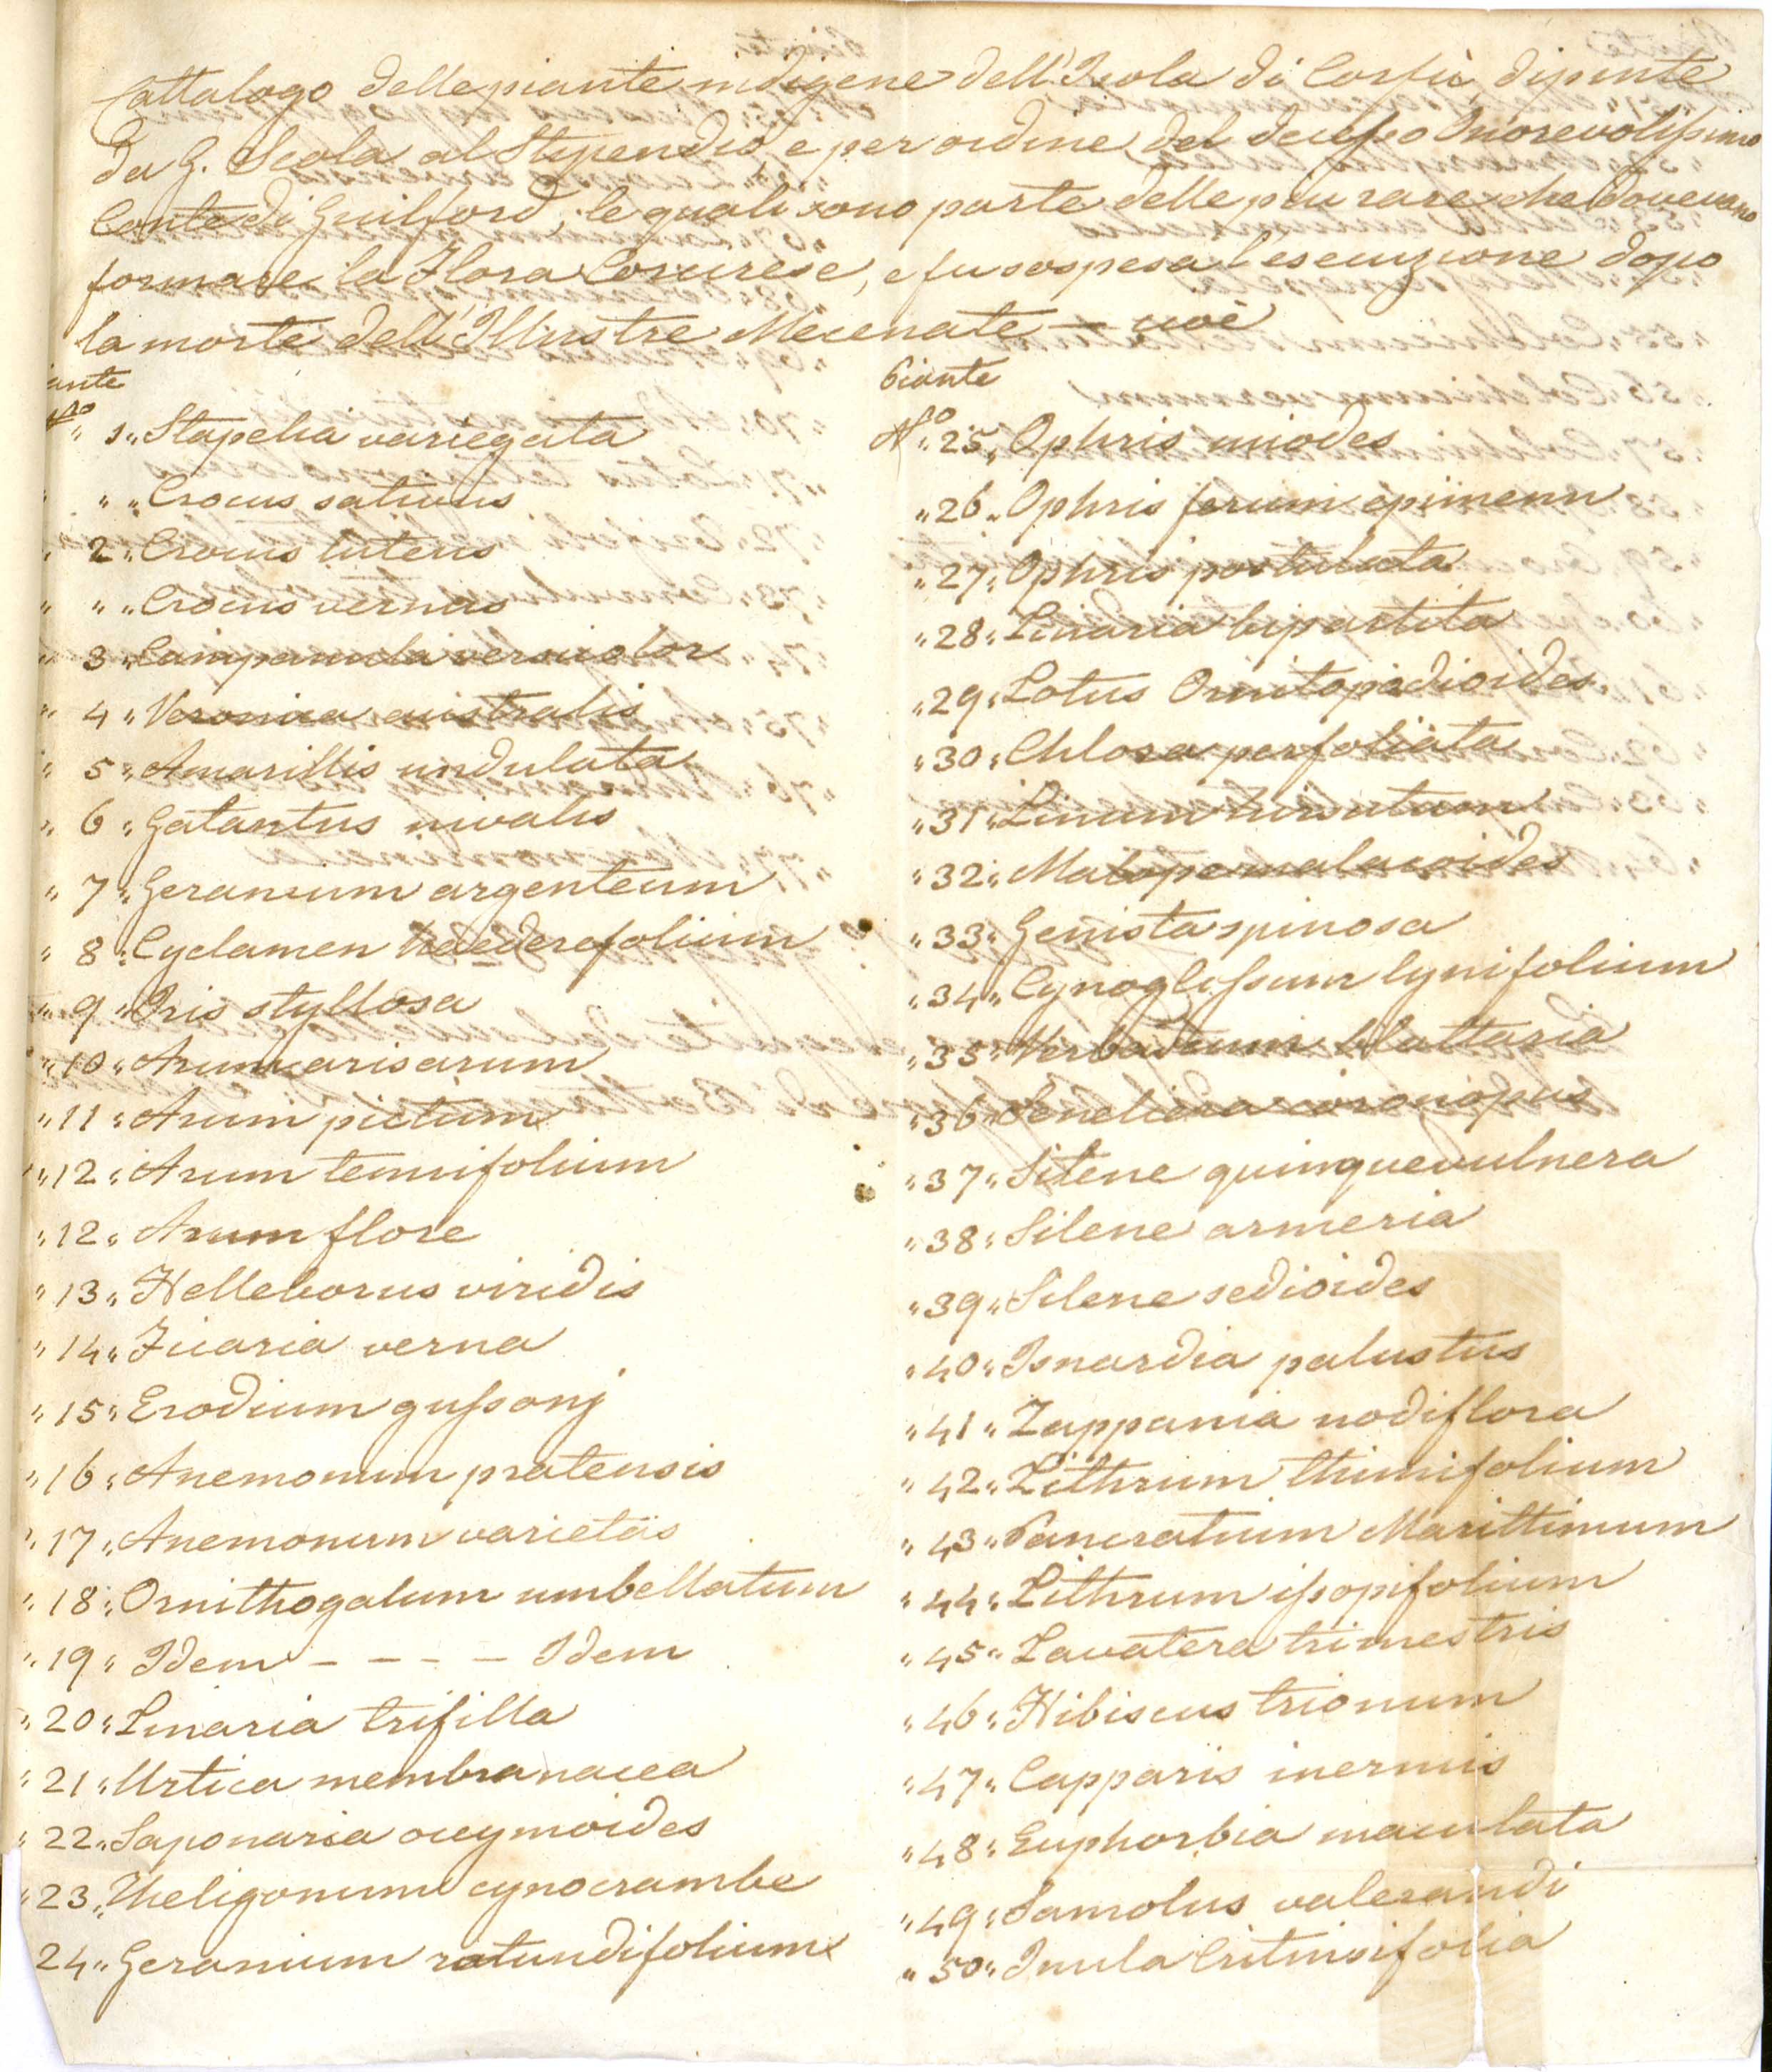 Cattalogo delle piante indigene dell'Isola di Corfù, dipinte
da G. Scola al Stipendio, e per ordine del deffo Onorevolissimo
Conte di Guilford, le quali sono parte delle più rare che dovevano
formare la Flora Corcirese, e fu sospesa l'esecuzione dopo
la morte dell'Illustre Mecenate — cioè
iante
No
" 1 " Stapelia variegata
" " " Crocus sativus
" 2 " Crocus luteus
" " " Crocus vernus
" 3 " Campanula versicolor
" 4 " Veronica australis
" 5 " Amarillis undulata
" 6 " Galantus nivalis
" 7 " Geranium argenteum
" 8 " Cyclamen haederefolium
" 9 " Iris styllosa
" 10 " Arum arisarum
" 11 " Arum pictum
" 12 " Arum tenuifolium
" 12 " Arum flore
" 13 " Helleborus viridis
" 14 " Ficaria verna
" 15 " Erodium gussonj
" 16 " Anemonum pratensis
" 17 " Anemonum varietas
" 18 " Ornithogalum umbellatum
" 19 " Idem - - - - Idem
" 20 " Linaria trifilla
" 21 " Urtica membranacea
" 22 " Saponaria ocymoides
" 23 " Theligonum cynocrambe
24 " Geranium rotundifolium
Piante
No " 25 " Ophris miodes
" 26 " Ophris ferum epimenn
" 27 " Ophris postulata
" 28 " Linaria bipartita
" 29 " Lotus Ornitopodioides
" 30 " Chlora perfoliata
" 31 " Linum hirsutum
" 32 " Malope malacoides
" 33 " Genista spinosa
" 34 " Cynoglossum lynifolium
" 35 " Verbascum blattaria
" 36 " Senebiera coronopus
" 37 " Silene quinquevulnera
" 38 " Silene armeria
" 39 " Silene sedioides
" 40 " Isnardia palustris
" 41 " Zappania nodiflora
" 42 " Lithrum thimifolium
" 43 " Pancratium Marittimum
" 44 " Lithrum issopifolium
" 45 " Lavatera trimestris
" 46 " Hibiscus trionum
" 47 " Capparis inermis
" 48 " Euphorbia maculata
" 49 " Samolus valerandi
" 50 " Inula Critmifolia